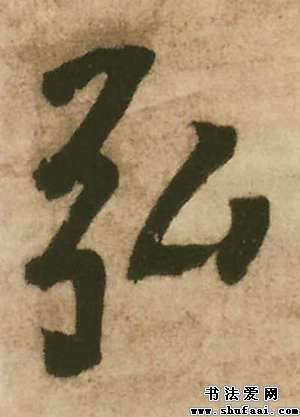 弘
书法爱网
www.shufaai.com